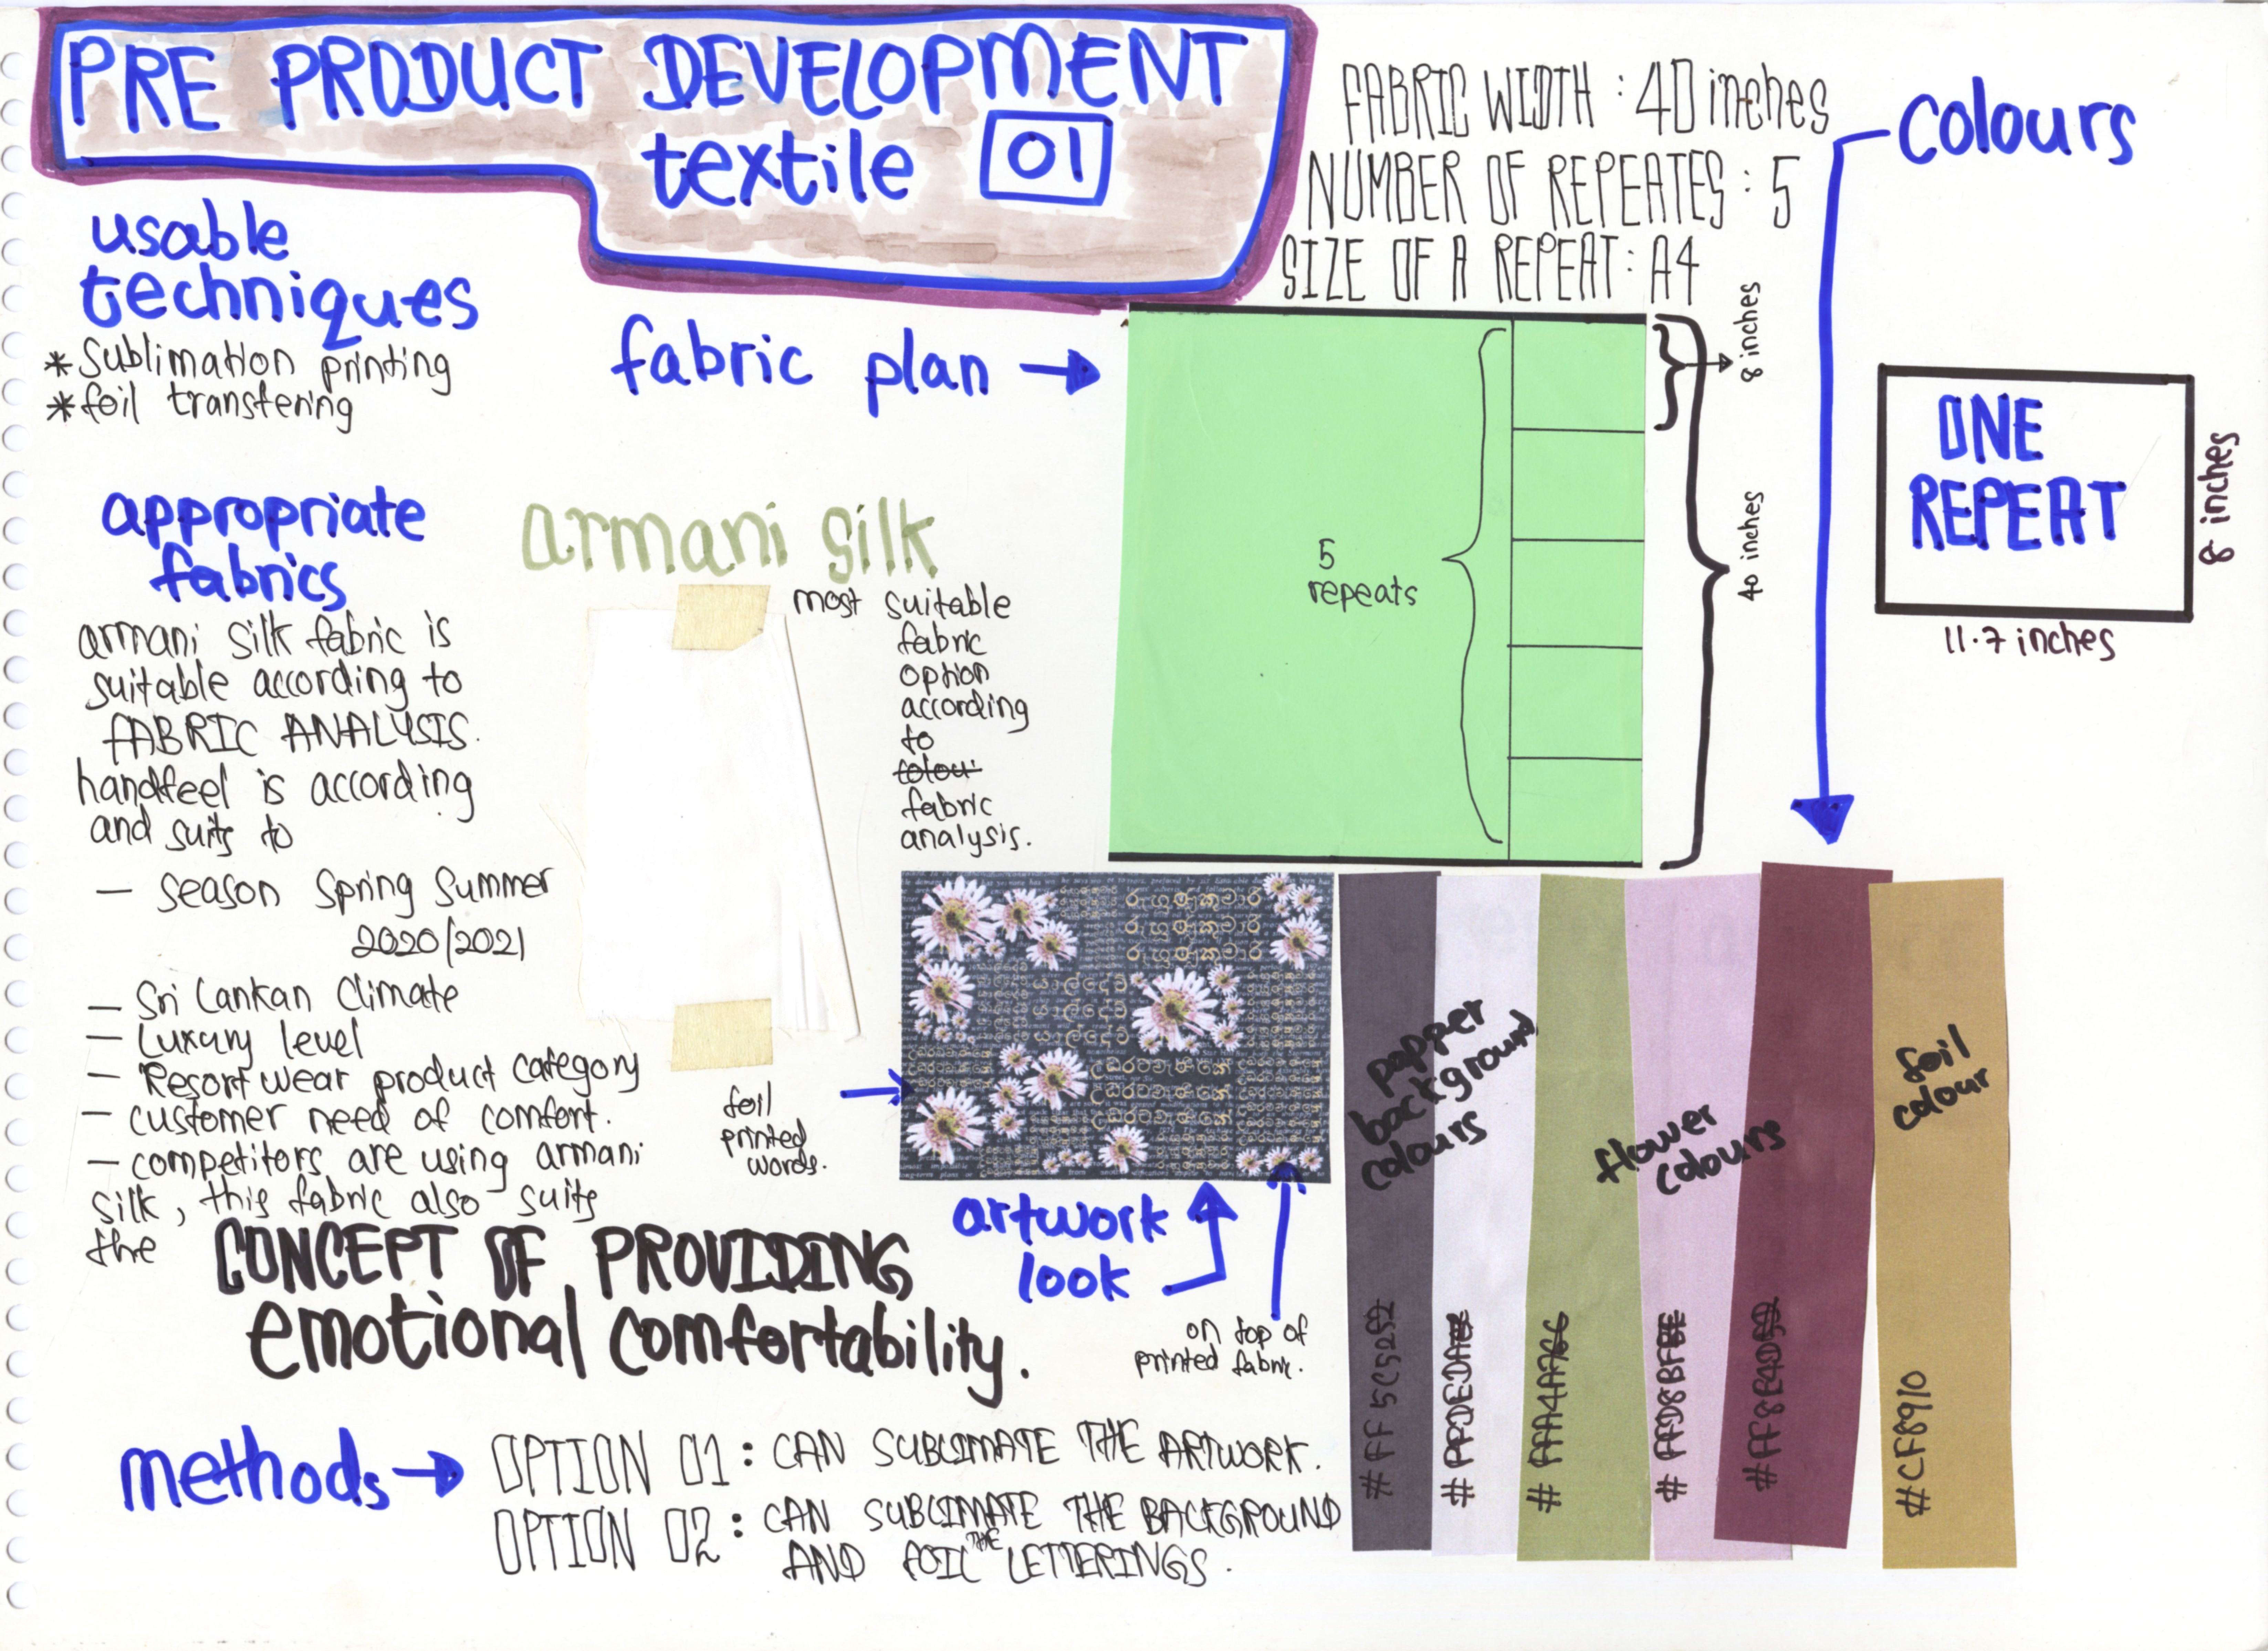 PRE PRODUCT DEVELOPMENT
textile 01
usable
techniques
* Sublimation printing
* foil transfering
appropriate
fabrics
armani silk fabric is
suitable according to
FABRIC ANALYSIS.
handfeel is according
and suits to
— Season Spring Summer
2020/2021
— Sri Lankan Climate
— Luxury level
— Resort wear product category
— customer need of comfort.
— competitors are using armani
silk, this fabric also suits
the
CONCEPT OF PROVIDING
emotional comfortability.
armani silk
most suitable
fabric
option
according
to
colour
fabric
analysis.
foil
printed
words.
fabric plan →
FABRIC WIDTH : 40 inches
NUMBER OF REPEATES : 5
SIZE OF A REPEAT: A4
5
repeats
8 inches
40 inches
colours
ONE
REPEAT
8 inches
11.7 inches
රූ සුකුමාරි
artwork
look
on top of
printed fabric.
papper
background
colours
flower
colours
foil
colour
#FF5C5252
#CF8910
methods →
OPTION 01 : CAN SUBLIMATE THE ARTWORK.
OPTION 02 : CAN SUBLIMATE THE BACKGROUND
AND FOIL THE LETTERINGS.